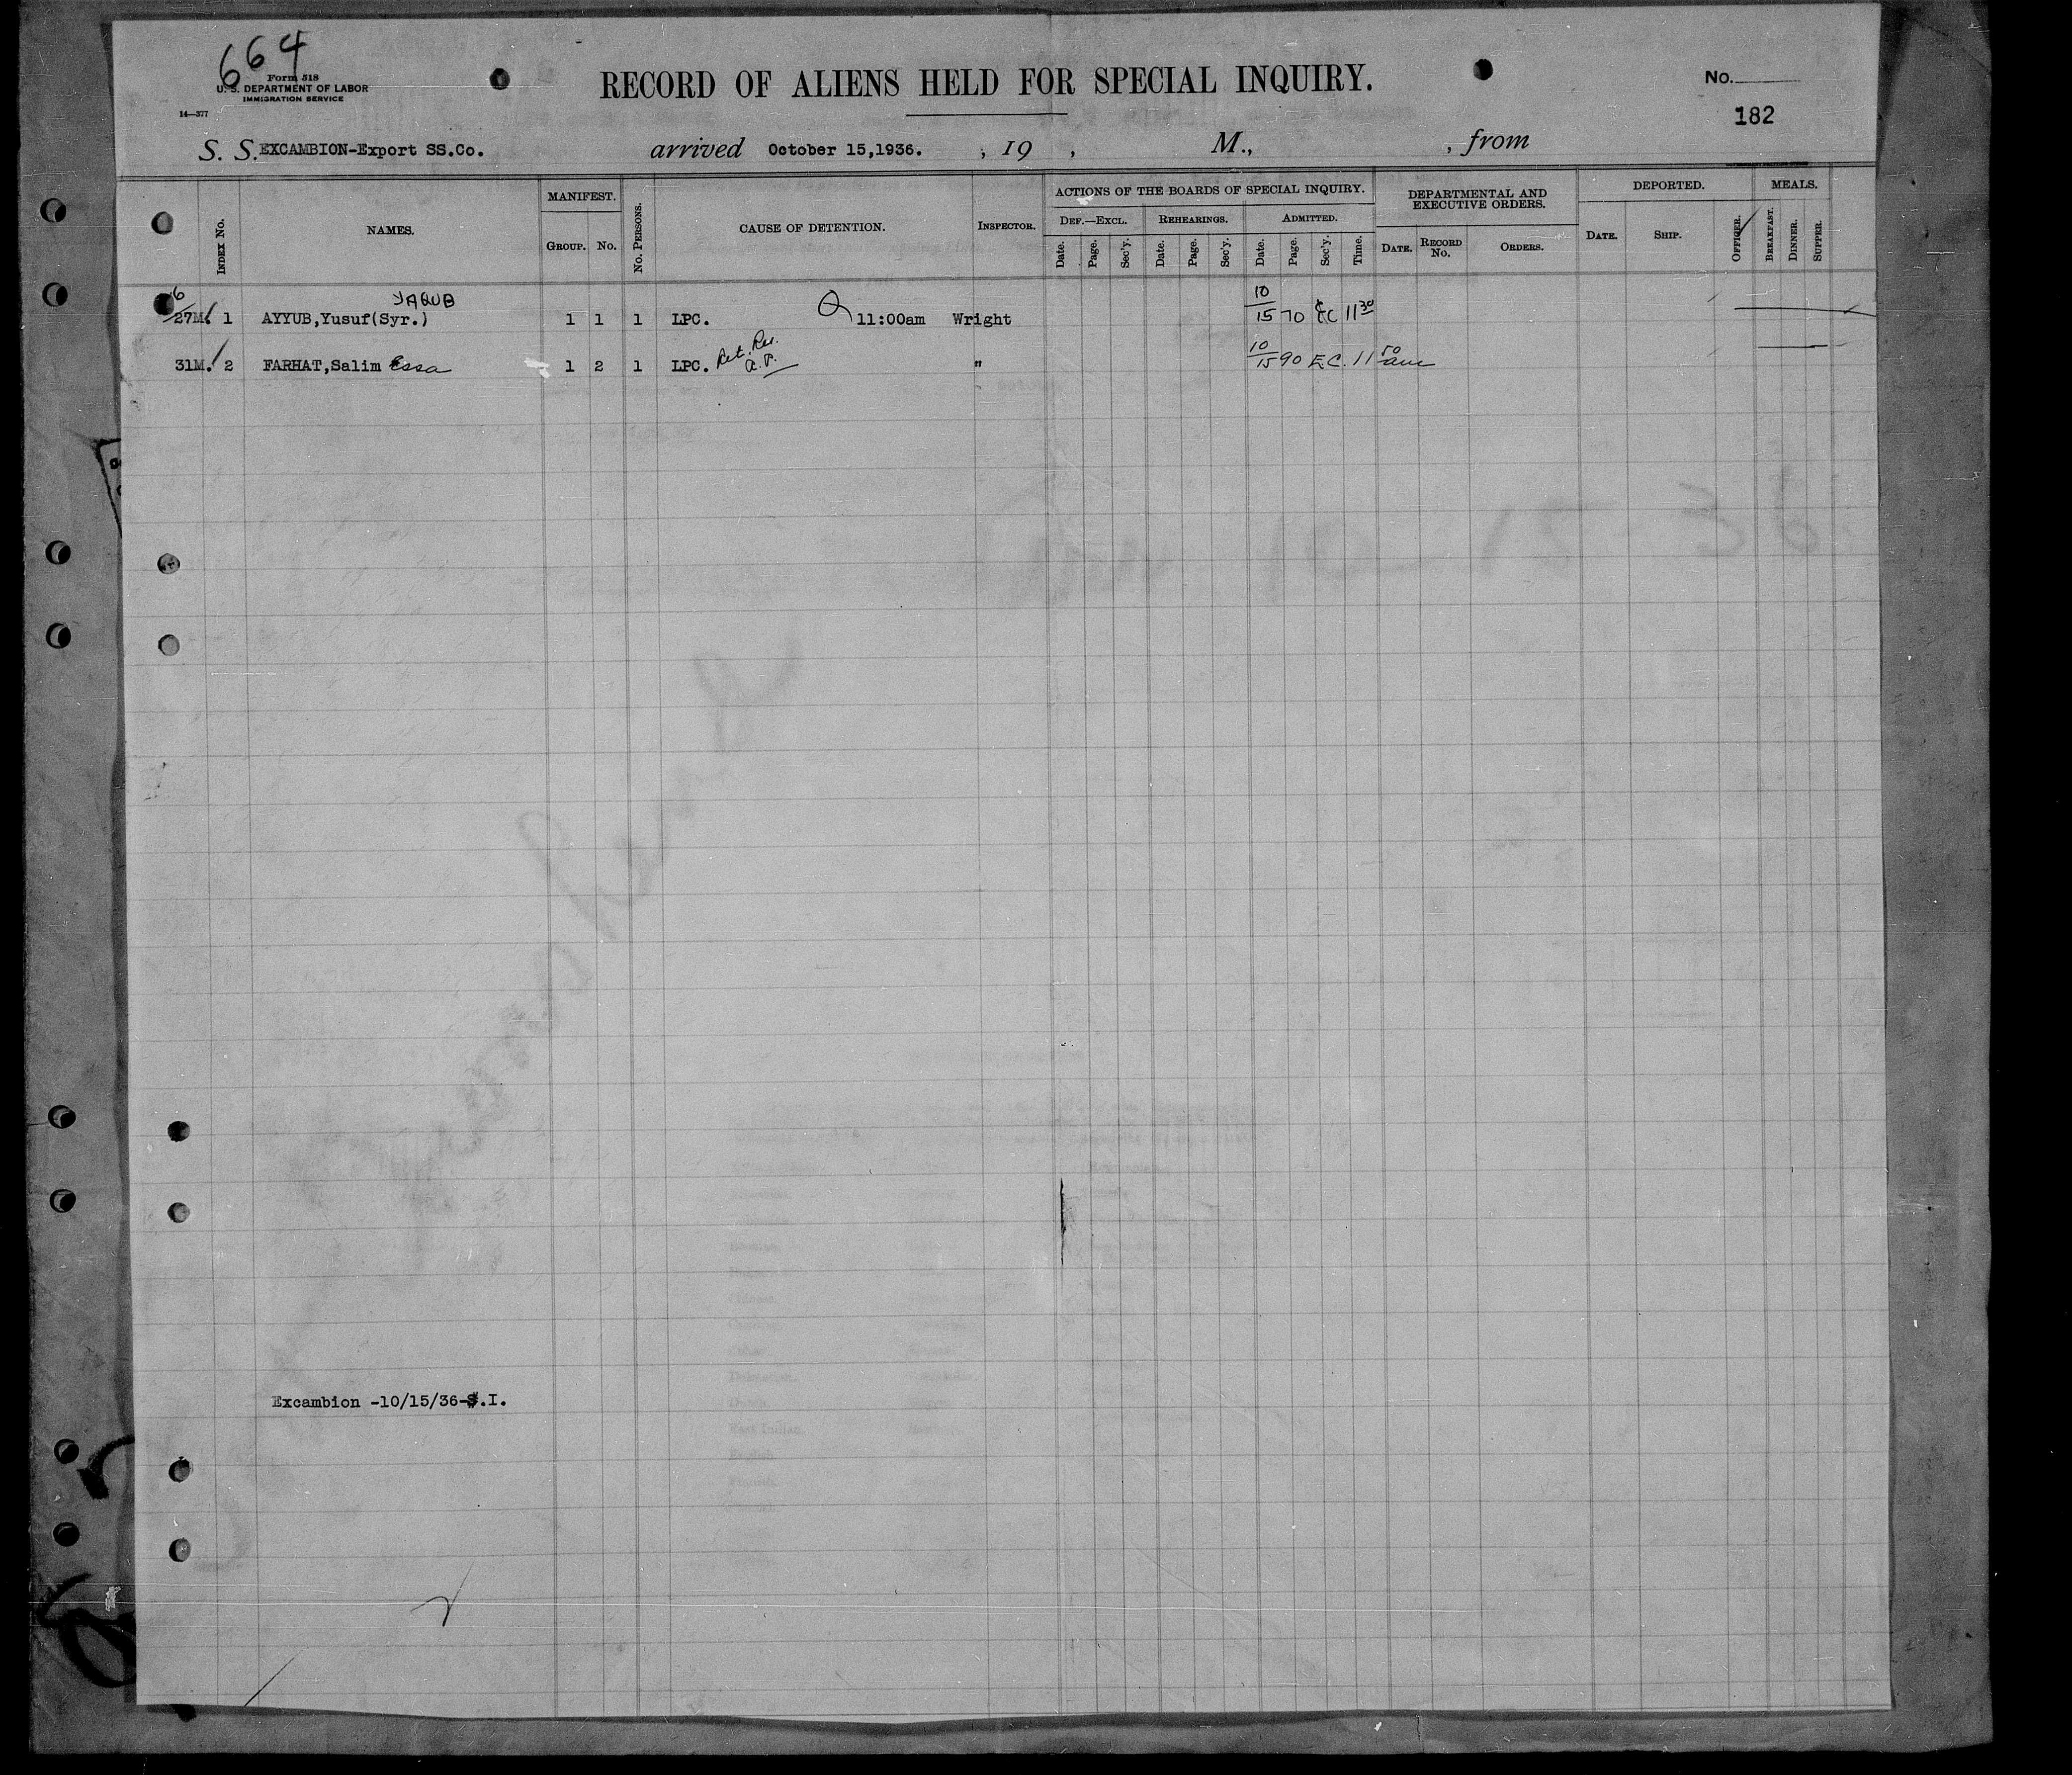 664
Form 518
U. S. DEPARTMENT OF LABOR
IMMIGRATION SERVICE
14—377
RECORD OF ALIENS HELD FOR SPECIAL INQUIRY.
No.
182
S. S. EXCAMBION-Export SS.Co. arrived October 15,1936. , 19 , M., , from
INDEX NO. NAMES. MANIFEST. GROUP. NO. NO. PERSONS. CAUSE OF DETENTION. INSPECTOR. ACTIONS OF THE BOARDS OF SPECIAL INQUIRY. DEF.—EXCL. Date. Page. Sec'y. REHEARINGS. Date. Page. Sec'y. ADMITTED. Date. Page. Sec'y. Time. DEPARTMENTAL AND EXECUTIVE ORDERS. DATE. RECORD NO. ORDERS. DEPORTED. DATE. SHIP. OFFICER. MEALS. BREAKFAST. DINNER. SUPPER.
6 YAQUB
27M. 1 AYYUB,Yusuf(Syr.) 1 1 1 LPC. 11:00am Wright 10/15 70 EC 11 30
31M. 2 FARHAT,Salim Essa 1 2 1 LPC. Ret. Res. " 10/15 90 E.C. 11 50 am
Excambion -10/15/36-S.I.